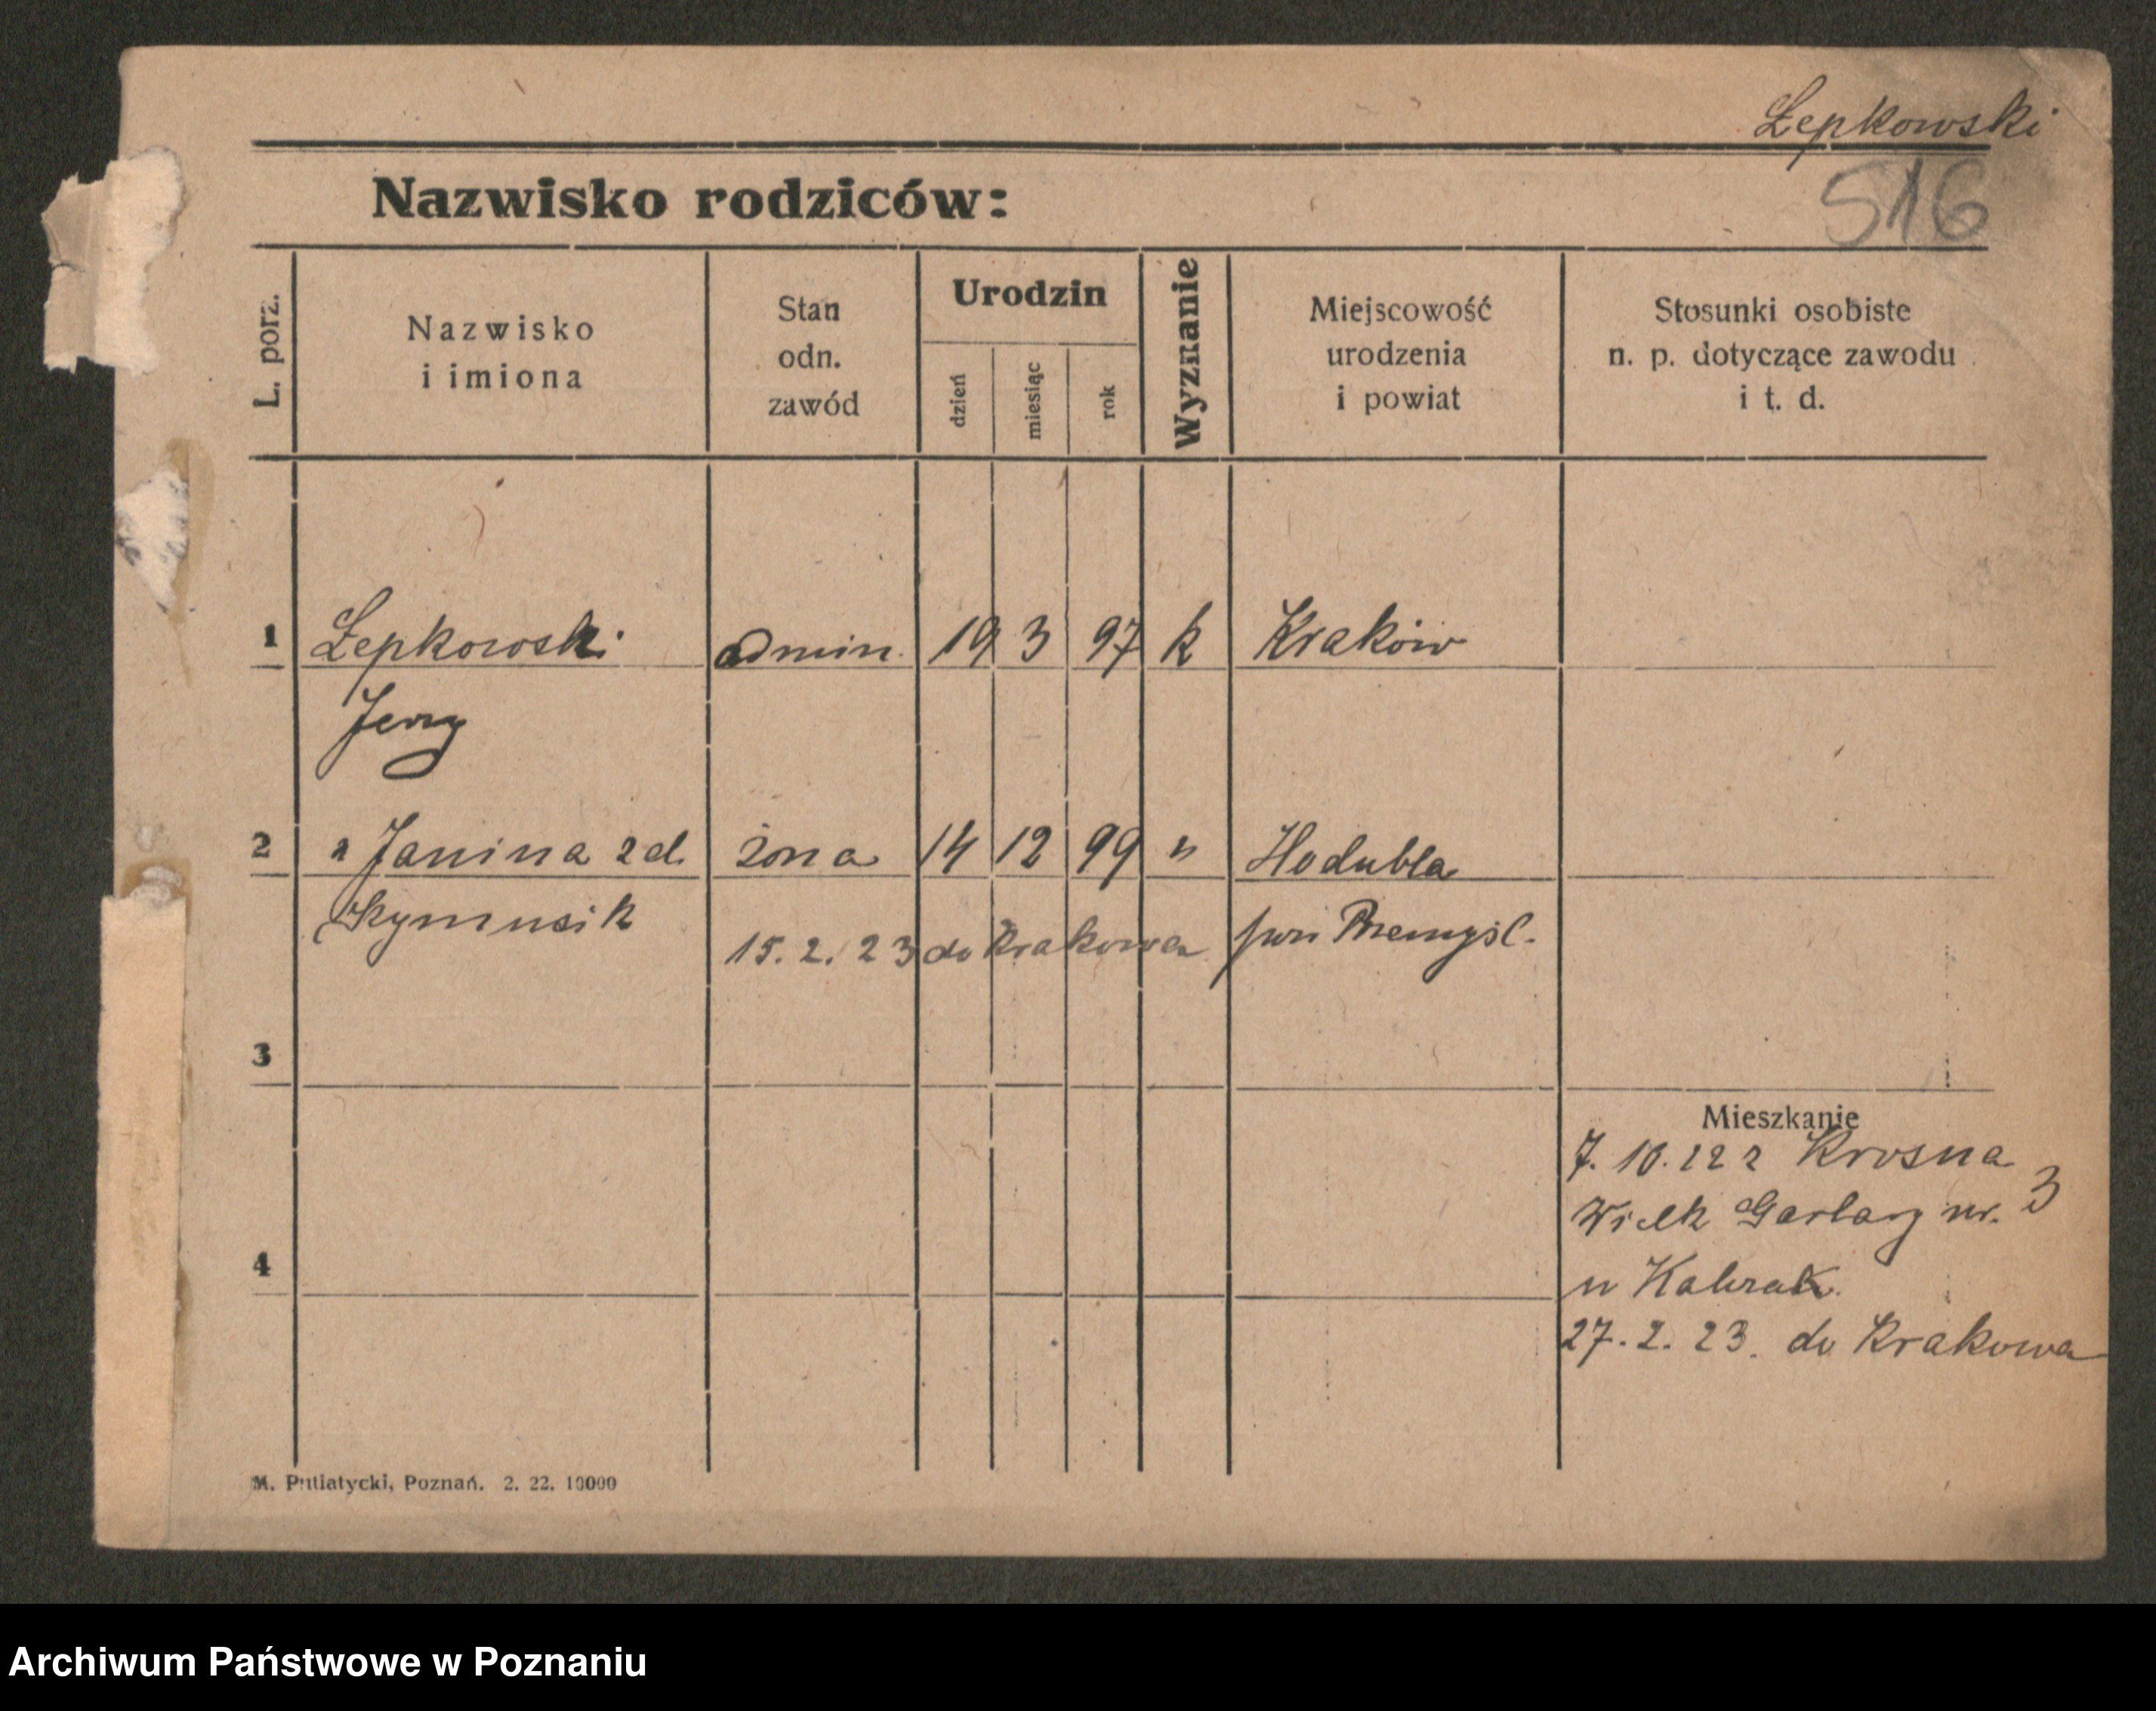 Łepkowski
516
Nazwisko rodziców:
L. porz.
Nazwisko
i imiona
Stan
odn.
zawód
Urodzin
dzień
miesiąc
rok
Wyznanie
Miejscowość
urodzenia
i powiat
Stosunki osobiste
n. p. dotyczące zawodu
i t. d.
1 Łepkowski admin. 19 3 97 k Kraków
Jerzy
2 " Janina zd. żona 14 12 99 " Hodubla
15.2.23 do Krakowa pow Przemyśl.
3
Mieszkanie
7.10.22 z Krosna
Wielk Garbary nr. 3
u
4
27.2.23. do Krakowa
M. Putiatycki, Poznań. 2. 22. 10000
Archiwum Państwowe w Poznaniu